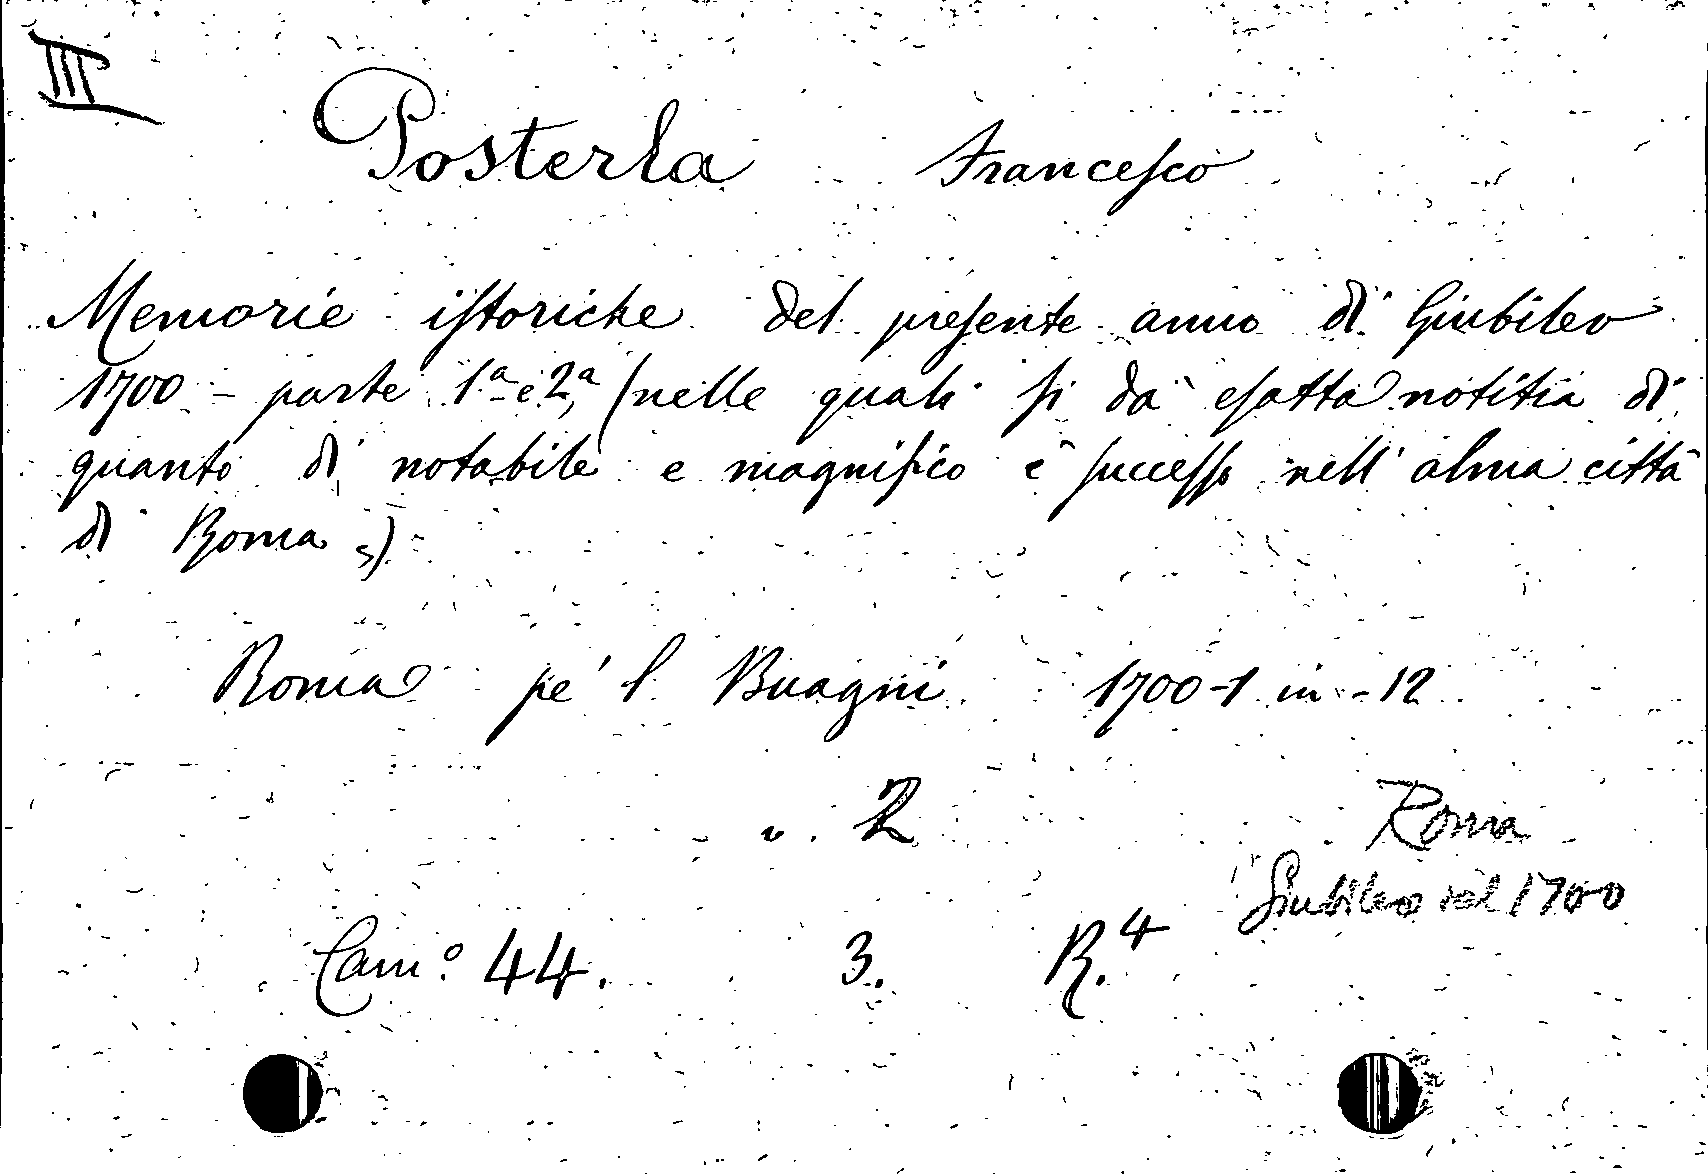 III
Posterla Francesco
Memorie istoriche del presente anno di Giubileo
1700 - parte 1ª e 2ª, (nelle quali si dà esatta notitia di
quanto di notabile e magnifico è successo nell'alma città
di Roma,)
Roma pe' l Buagni 1700-1 in-12
v. 2
Roma
Giubileo del 1700
Cam.º 44. 3. R.4